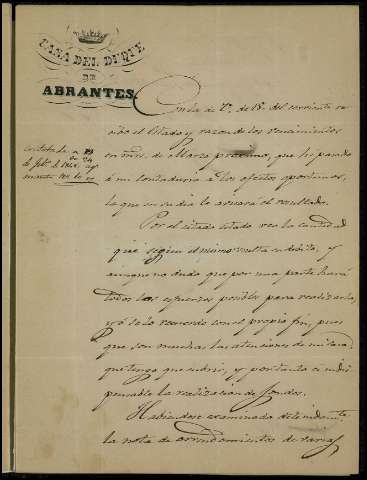 CASA DEL DUQUE
DE
ABRANTES.
Con la de V. de 18 del corriente re-
cibo el Estado y razon de los vencimientos
en mrs. de Marzo proximo, que he pasado
á mi contaduria a los efectos oportunos,
la que en su dia le avisará el resultado.
Por el citado estado veo la cantidad
que segun el mismo resulta en debito, y
aunque no dudo que por una parte hará
todos los esfuerzos posibles para realizarla,
yo se lo recuerdo con el propio fin, pues
que son muchas las atenciones de mi casa
que tengo que cubrir, y por tanto es indis-
pensable la realizacion de fondos.
Habiendose examinado detenidamte.
la nota de arrendamientos de varias
contestada a
de Feb. de